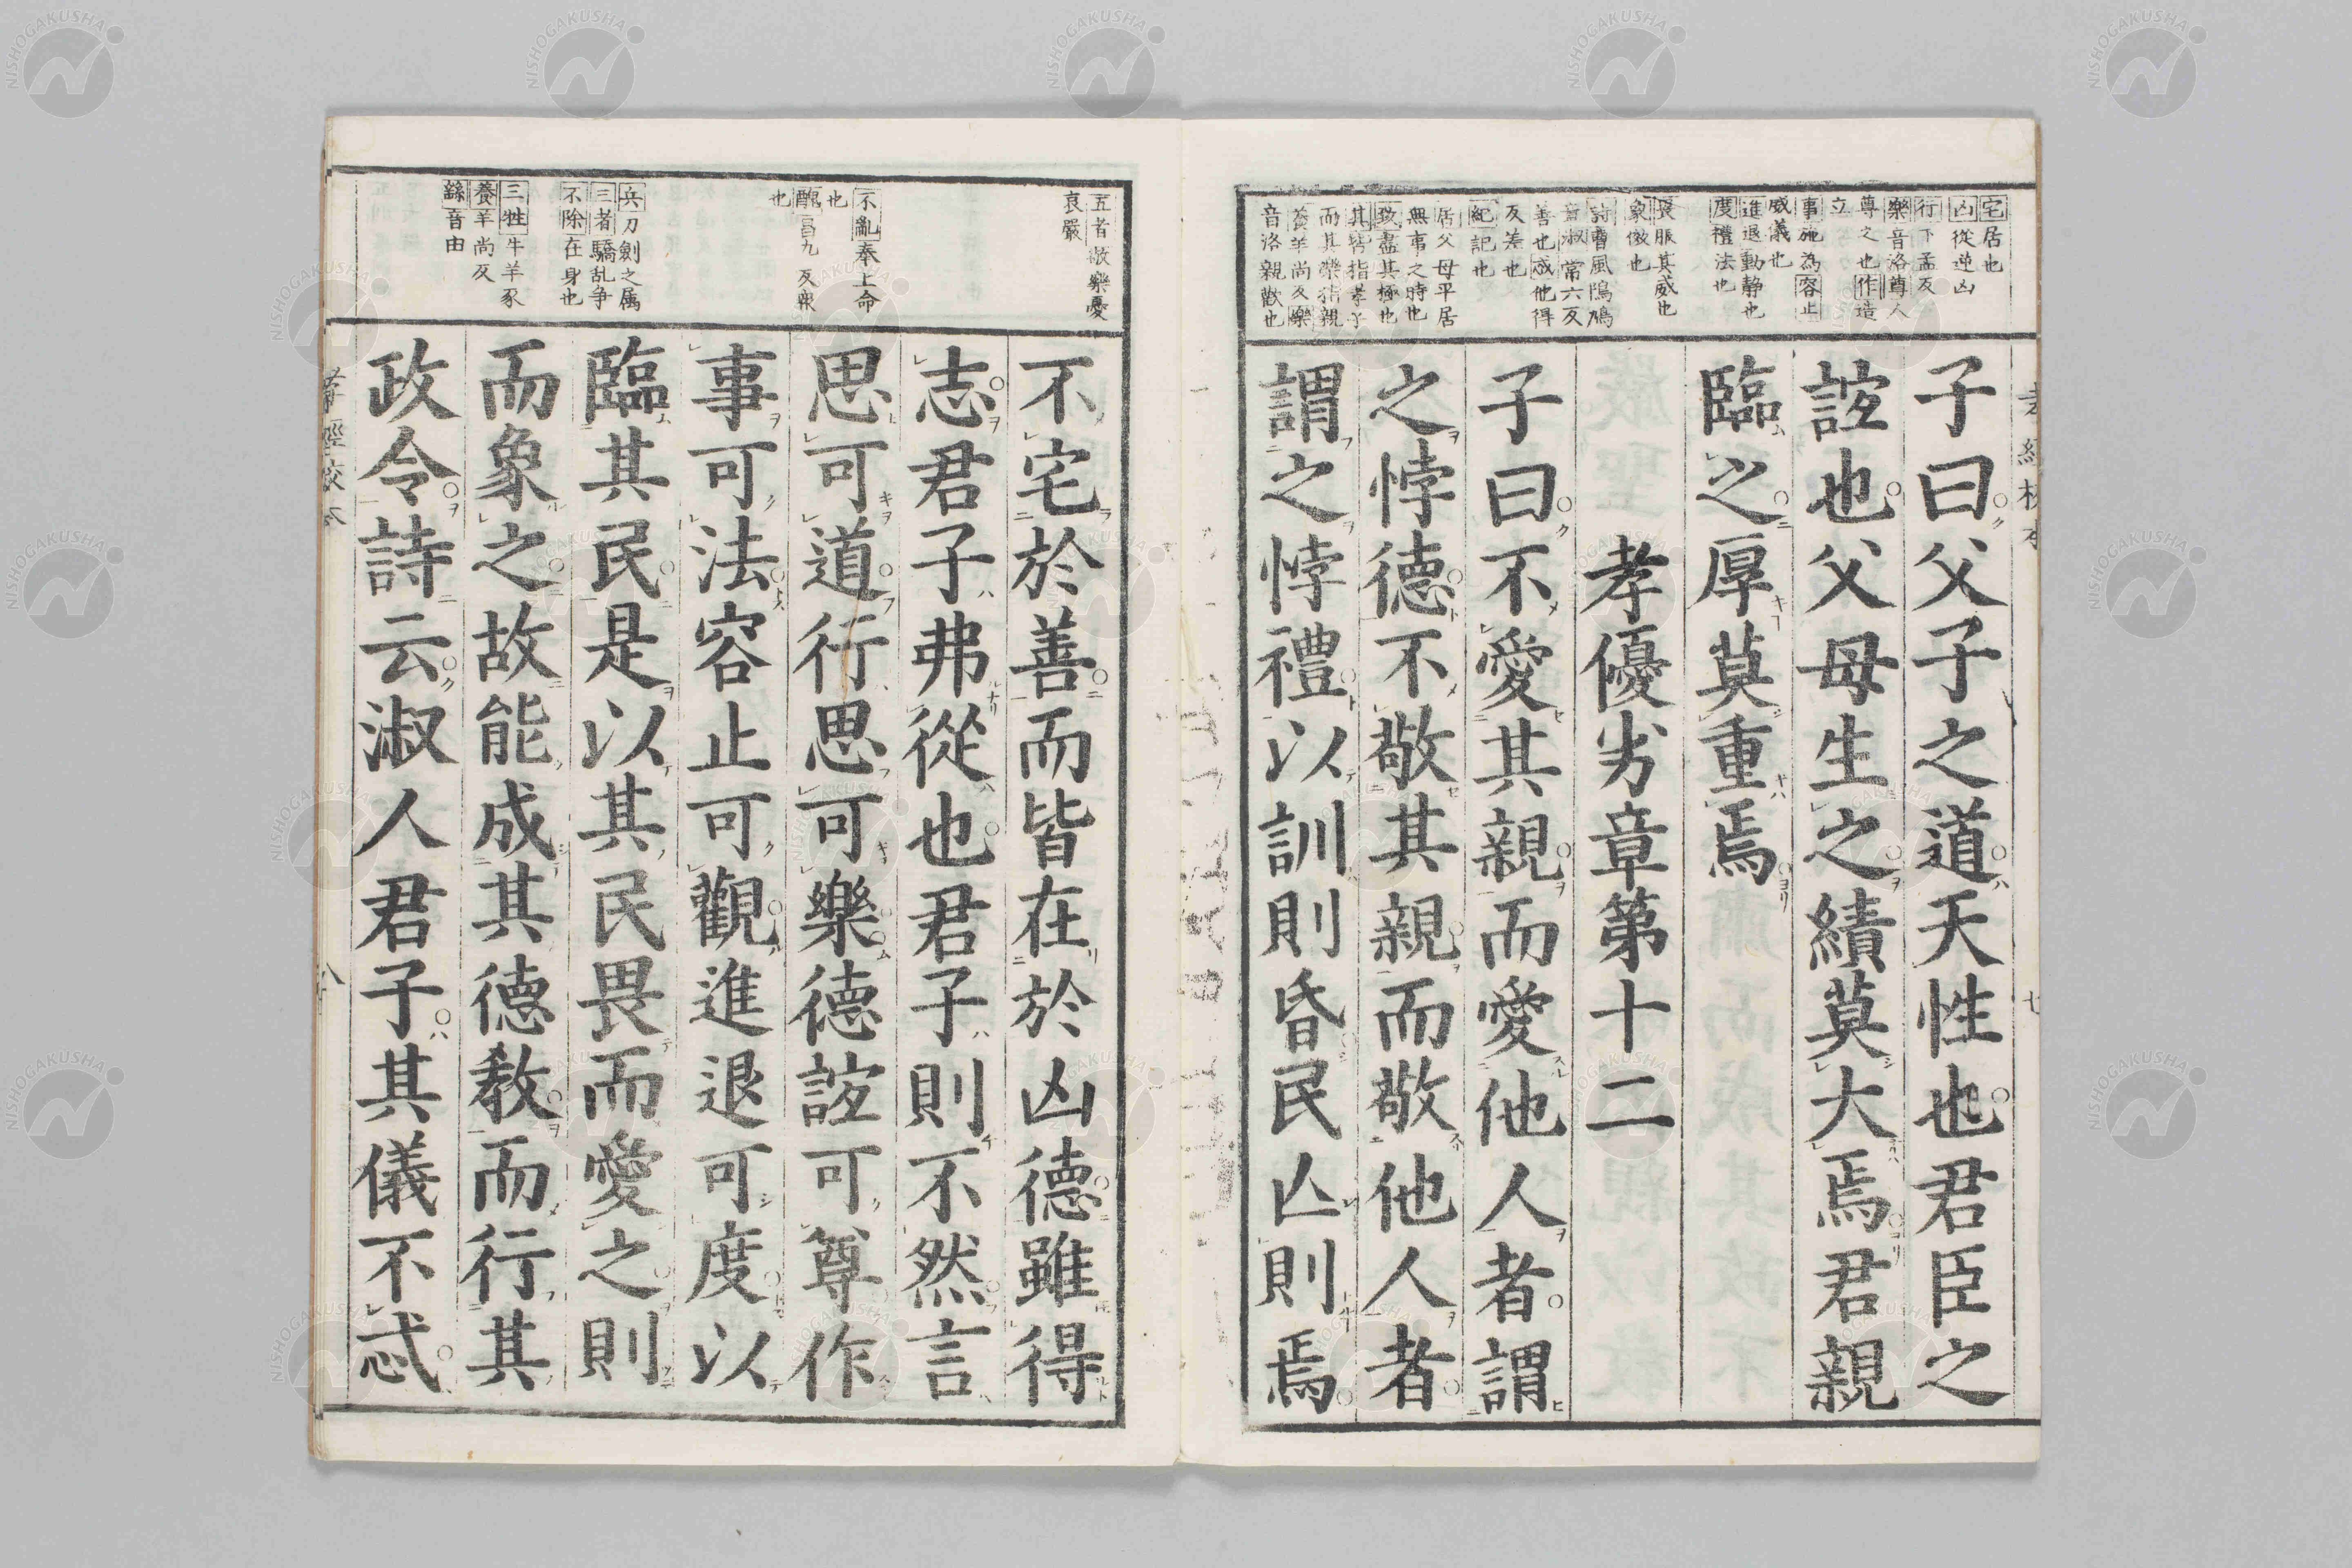 宅居也
凶從逆凶
行下孟反
樂音洛尊人
尊之也作造
立
事施為容止
威儀也
進退動静也
度禮法也
畏服其威也
象傚也
詩曹風鳲鳩
音淑常六反
善也忒他得
反差也
紀記也
居父母平居
無事之時也
致盡其極也
其皆指孝子
而其樂指親
養羊尚反樂
音洛親歡也
子曰父子之道天性也君臣之
誼也父母生之績莫大焉君親
臨之厚莫重焉
孝優劣章第十二
子曰不愛其親而愛他人者謂
之悖德不敬其親而敬他人者
謂之悖禮以訓則昏民亾則焉
七
五者敬樂憂
哀嚴
不亂奉上命
也
醜昌九反衆
也
兵刀劍之属
三者驕乱争
不除在身也
三牲牛羊豕
養羊尚反
繇音由
不宅於善而皆在於凶德雖得
志君子弗從也君子則不然言
思可道行思可樂德誼可尊作
事可法容止可觀進退可度以
臨其民是以其民畏而愛之則
而象之故能成其德教而行其
政令詩云淑人君子其儀不忒
八
NISHOGAKUSHA